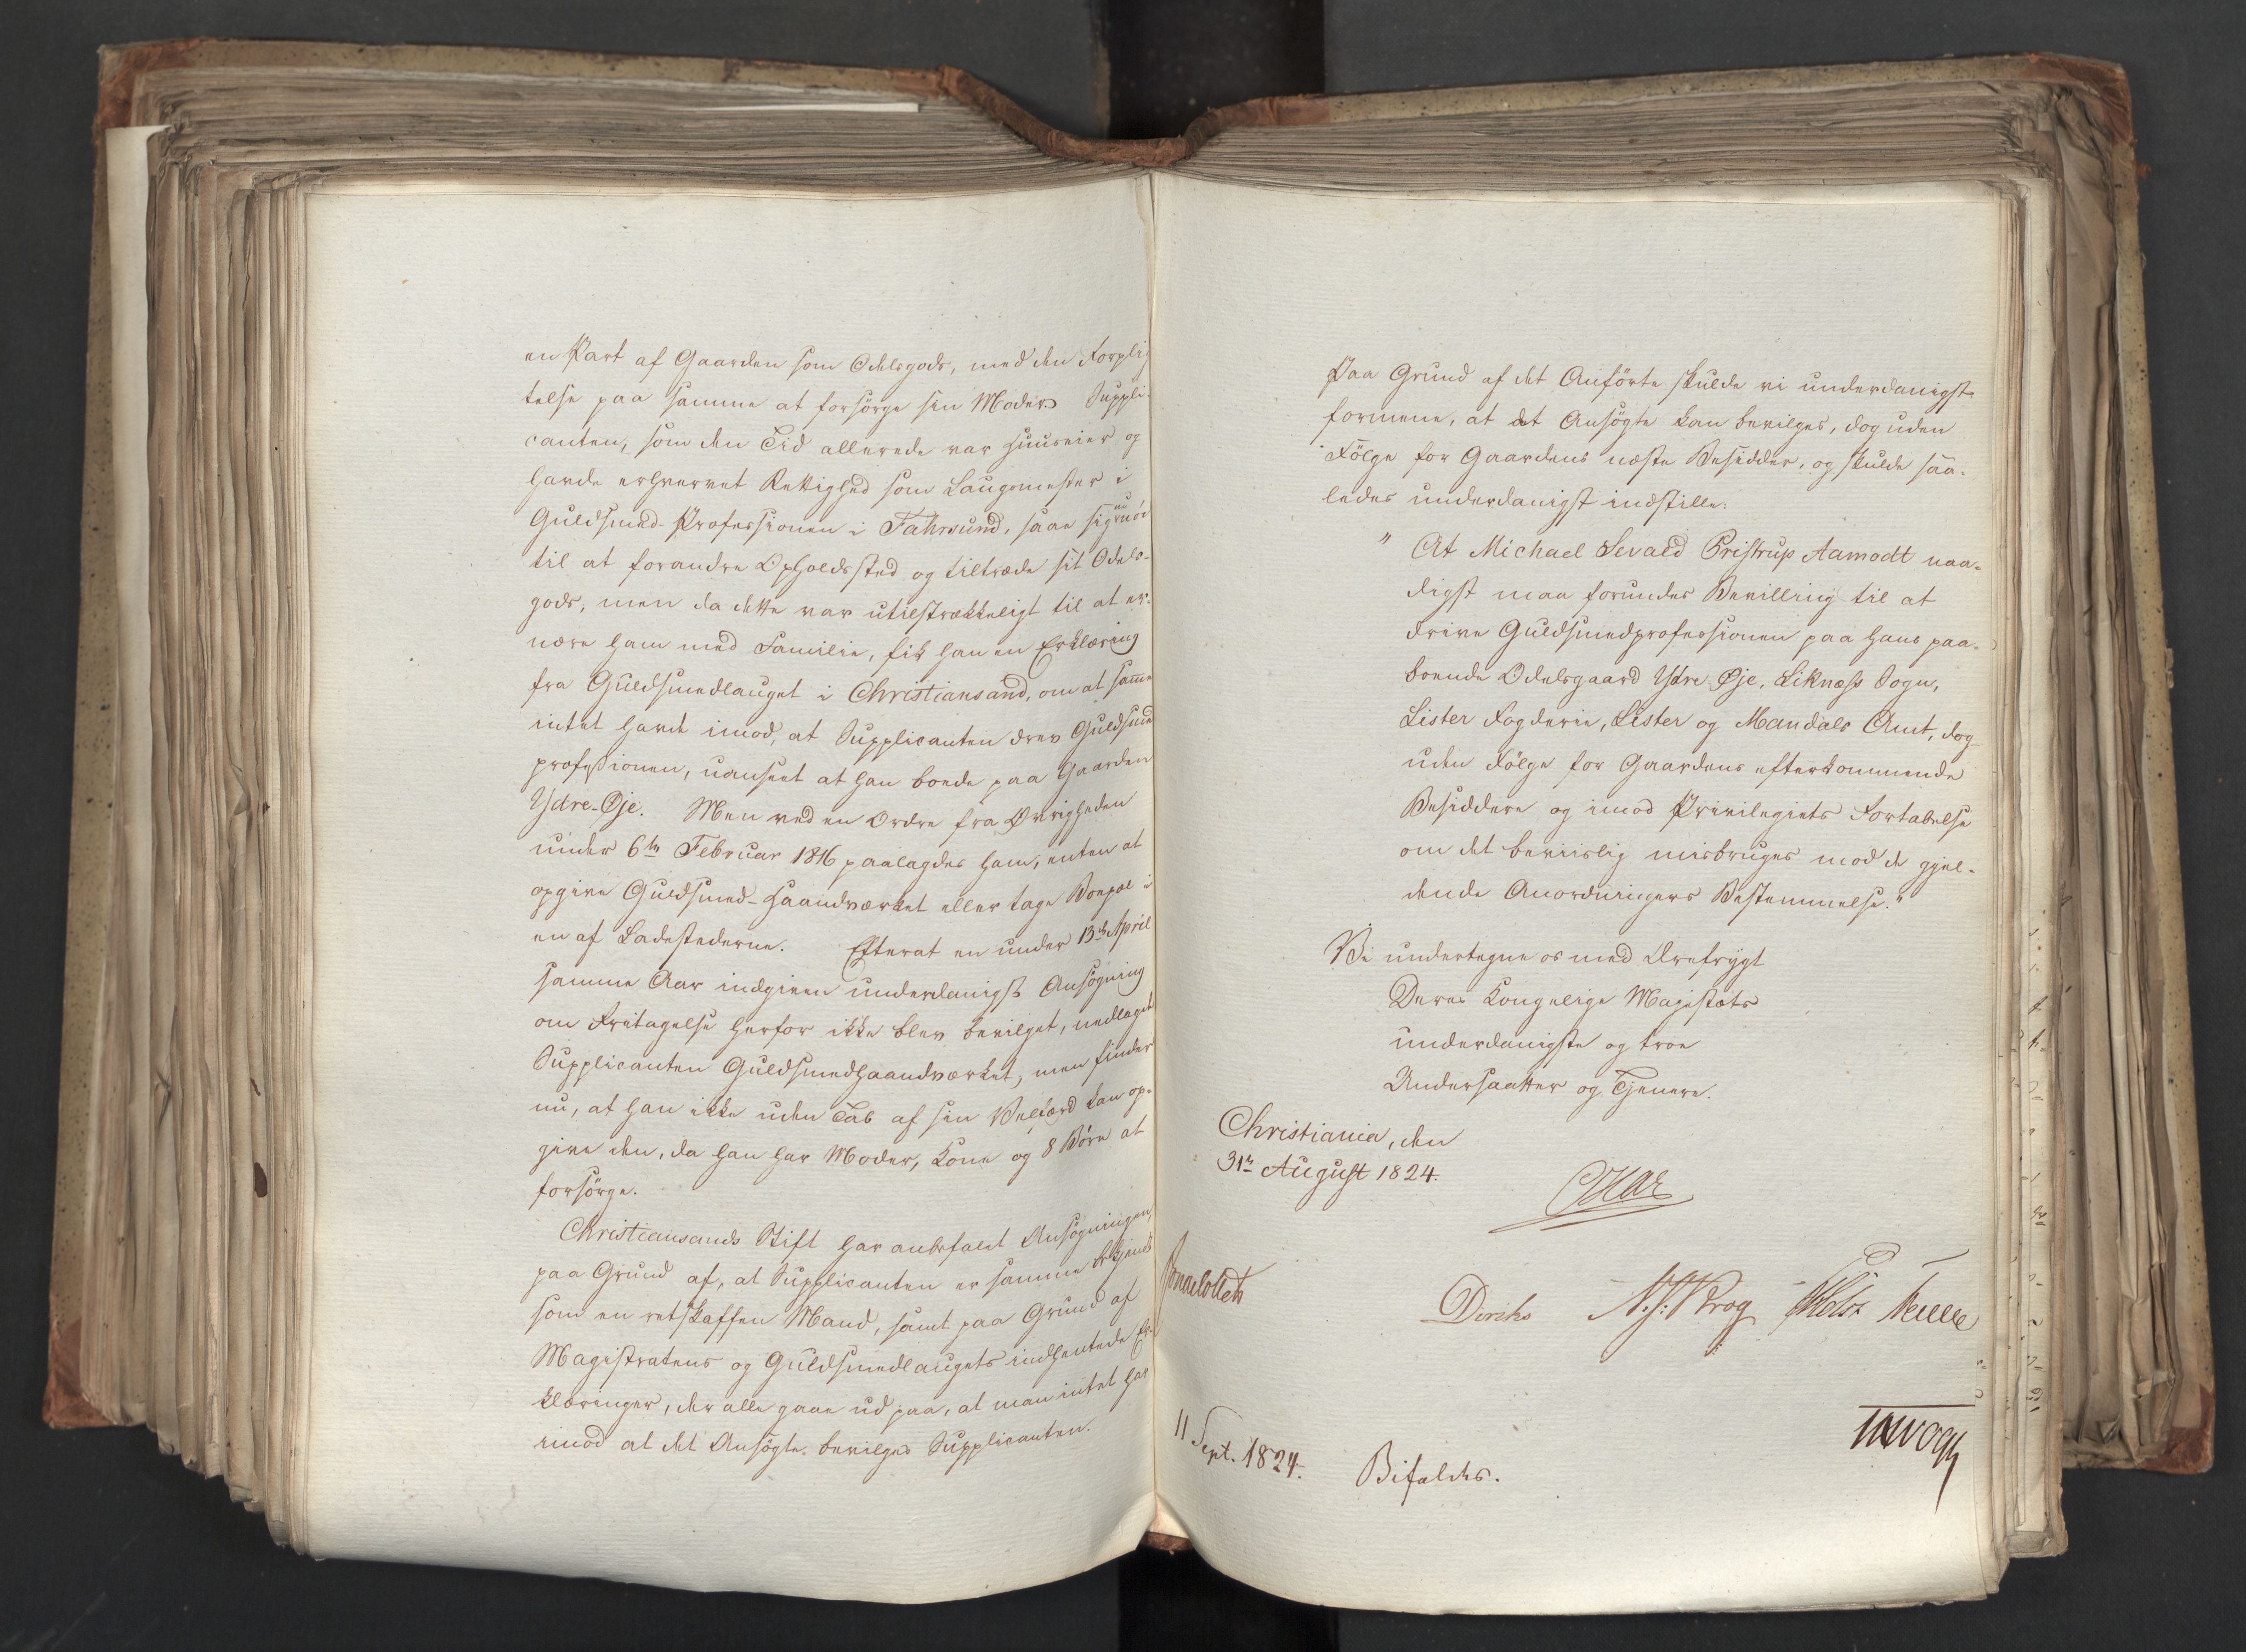 en Part af Gaarden som Odelsgods, med den Forplig
telse paa samme at forsörge sin Moder. Suppli-
canten, som den Tid allerede var Huuseier og
havde erhvervet Rettighed som Laugsmester i
Guldsmed-Professionen i Fahrsund, saae sig nu nöd
til at forandre Opholdssted og tiltræde sit Odels-
gods; men da dette var utilstrækkeligt til at er-
nære ham med Familie, fik han en Erklæring
fra Guldsmedlauget i Christiansand, om at samme
intet havde imod, at Supplicanten drev Guldsmed
professionen, uanseet at han boede paa Gaarden
Ydre-Øje. Men ved en Ordre fra Øvrigheden
under 6te Februar 1816 paalagdes ham, enten at
opgive Guldsmed-Haandværket eller tage Boepæl i
en af Ladestederne. Efterat en under 13de April
samme Aar indgiven underdanigst Ansögning
om Fritagelse herfor ikke blev bevilget, nedlagde
Supplicanten Guldsmedhaandværket, men finder
nu, at han ikke uden Tab af sin Velfærd kan op-
give den, da han har Moder, Kone og 8 Börn at
forsörge.
Christiansands Stift har anbefalet Ansögningen,
paa Grund af, at Supplicanten er samme bekjendt
som en retskaffen Mand, samt paa Grund af
Magistratens og Guldsmedlaugets indhentede Er-
klæringer, der alle gaae ud paa, at man intet har
imod at det Ansögte bevilges Supplicanten.
Paa Grund af det Anförte skulde vi underdanigst
formene, at det Ansögte kan bevilges, dog uden
Fölge for Gaardens næste Besidder, og skulde saa-
ledes underdanigst indstille:
" At Michael Sevald Pristrup Aamodt naa-
digst maa forundes Bevilling til at
drive Guldsmedprofessionen paa hans paa-
boende Odelsgaard Ydre Øje, Liknæss Sogn,
Lister Fogderie, Lister og Mandals Amt, dog
uden Fölge for Gaardens efterkommende
Besiddere og imod Privilegiets Fortabelse
om det beviislig misbruges mod de gjel-
dende Anordningers Bestemmelse."
Vi undertegne os med Ærefrygt
Deres Kongelige Majestæts
underdanigste og troe
Undersaatter og Tjenere.
Christiania, den
31te August 1824.
Sommerhielm
Diriks N. J. Krog
11 Sept. 1824.
Bifaldes.